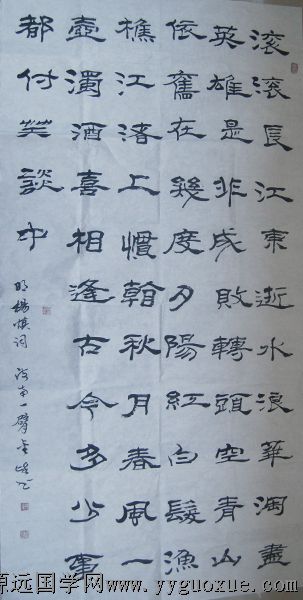 滚滚長江東逝水浪華淘盡
英雄是非成敗轉頭空青山
依舊在幾度夕陽紅白髮漁
樵江渚上慣翰秋月春風一
壺濁酒喜相逢古今多少事
都付笑談中
明楊慎詞 河南一臂
源远国学网www.yyguoxue.com